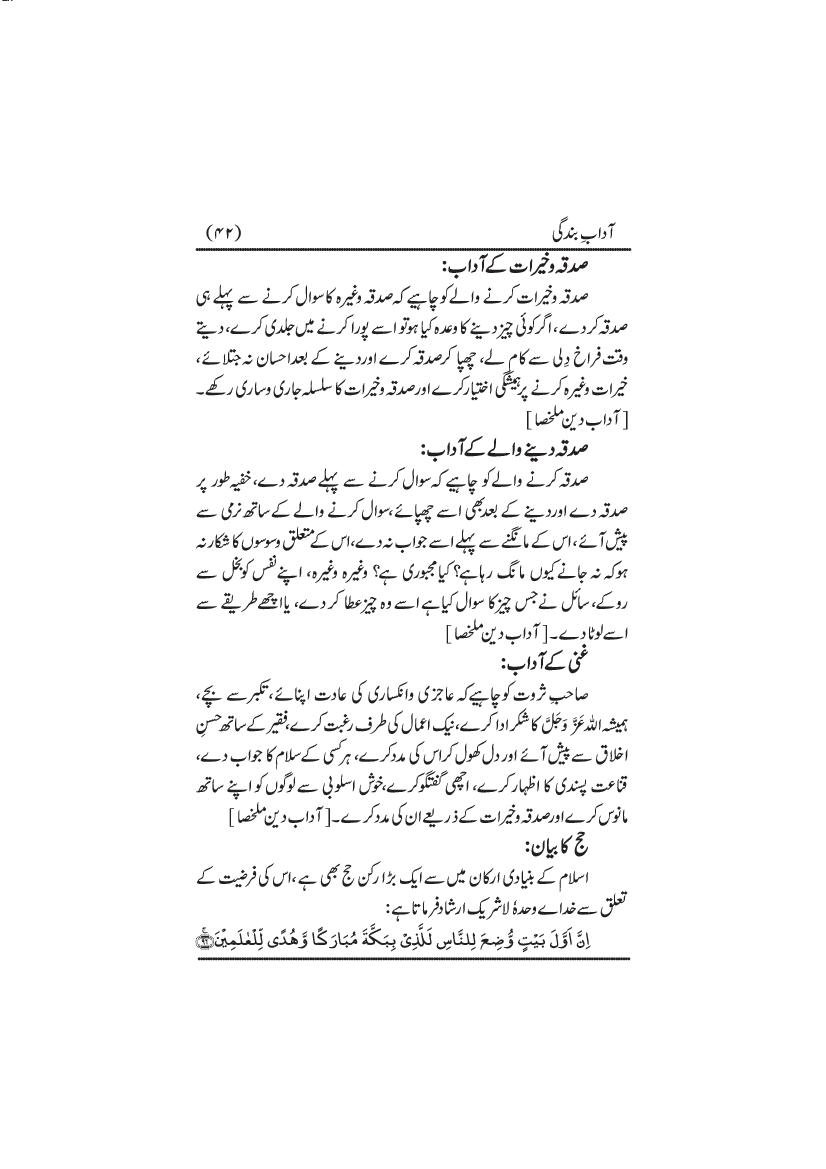 آدابِ بندگی (۴۲)
صدقہ وخیرات کے آداب:
صدقہ وخیرات کرنے والے کو چاہیے کہ صدقہ وغیرہ کا سوال کرنے سے پہلے ہی
صدقہ کر دے، اگر کوئی چیز دینے کا وعدہ کیا ہو تو اسے پورا کرنے میں جلدی کرے، دیتے
وقت فراخ دِلی سے کام لے، چھپا کر صدقہ کرے اور دینے کے بعد احسان نہ جتلائے،
خیرات وغیرہ کرنے پر ہمیشگی اختیار کرے اور صدقہ وخیرات کا سلسلہ جاری وساری رکھے۔
[آداب دین ملخصا]
صدقہ دینے والے کے آداب:
صدقہ کرنے والے کو چاہیے کہ سوال کرنے سے پہلے صدقہ دے، خفیہ طور پر
صدقہ دے اور دینے کے بعد بھی اسے چھپائے، سوال کرنے والے کے ساتھ نرمی سے
پیش آئے، اس کے مانگنے سے پہلے اسے جواب نہ دے، اس کے متعلق وسوسوں کا شکار نہ
ہو کہ نہ جانے کیوں مانگ رہا ہے؟ کیا مجبوری ہے؟ وغیرہ وغیرہ، اپنے نفس کو بخل سے
روکے، سائل نے جس چیز کا سوال کیا ہے اسے وہ چیز عطا کر دے، یا اچھے طریقے سے
اسے لوٹا دے۔ [آداب دین ملخصا]
غنی کے آداب:
صاحبِ ثروت کو چاہیے کہ عاجزی وانکساری کی عادت اپنائے، تکبر سے بچے،
ہمیشہ اللہ عَزَّ وَجَلَّ کا شکر ادا کرے، نیک اعمال کی طرف رغبت کرے، فقیر کے ساتھ حسنِ
اخلاق سے پیش آئے اور دل کھول کر اس کی مدد کرے، ہر کسی کے سلام کا جواب دے،
قناعت پسندی کا اظہار کرے، اچھی گفتگو کرے، خوش اسلوبی سے لوگوں کو اپنے ساتھ
مانوس کرے اور صدقہ وخیرات کے ذریعے ان کی مدد کرے۔ [آداب دین ملخصا]
حج کا بیان:
اسلام کے بنیادی ارکان میں سے ایک بڑا رکن حج بھی ہے، اس کی فرضیت کے
تعلق سے خدا ے وحدہٗ لا شریک ارشاد فرماتا ہے:
اِنَّ اَوَّلَ بَیْتٍ وُّضِعَ لِلنَّاسِ لَلَّذِیْ بِبَکَّۃَ مُبَارَکًا وَّهُدًی لِّلْعٰلَمِیْنَ ﴿۹۶﴾